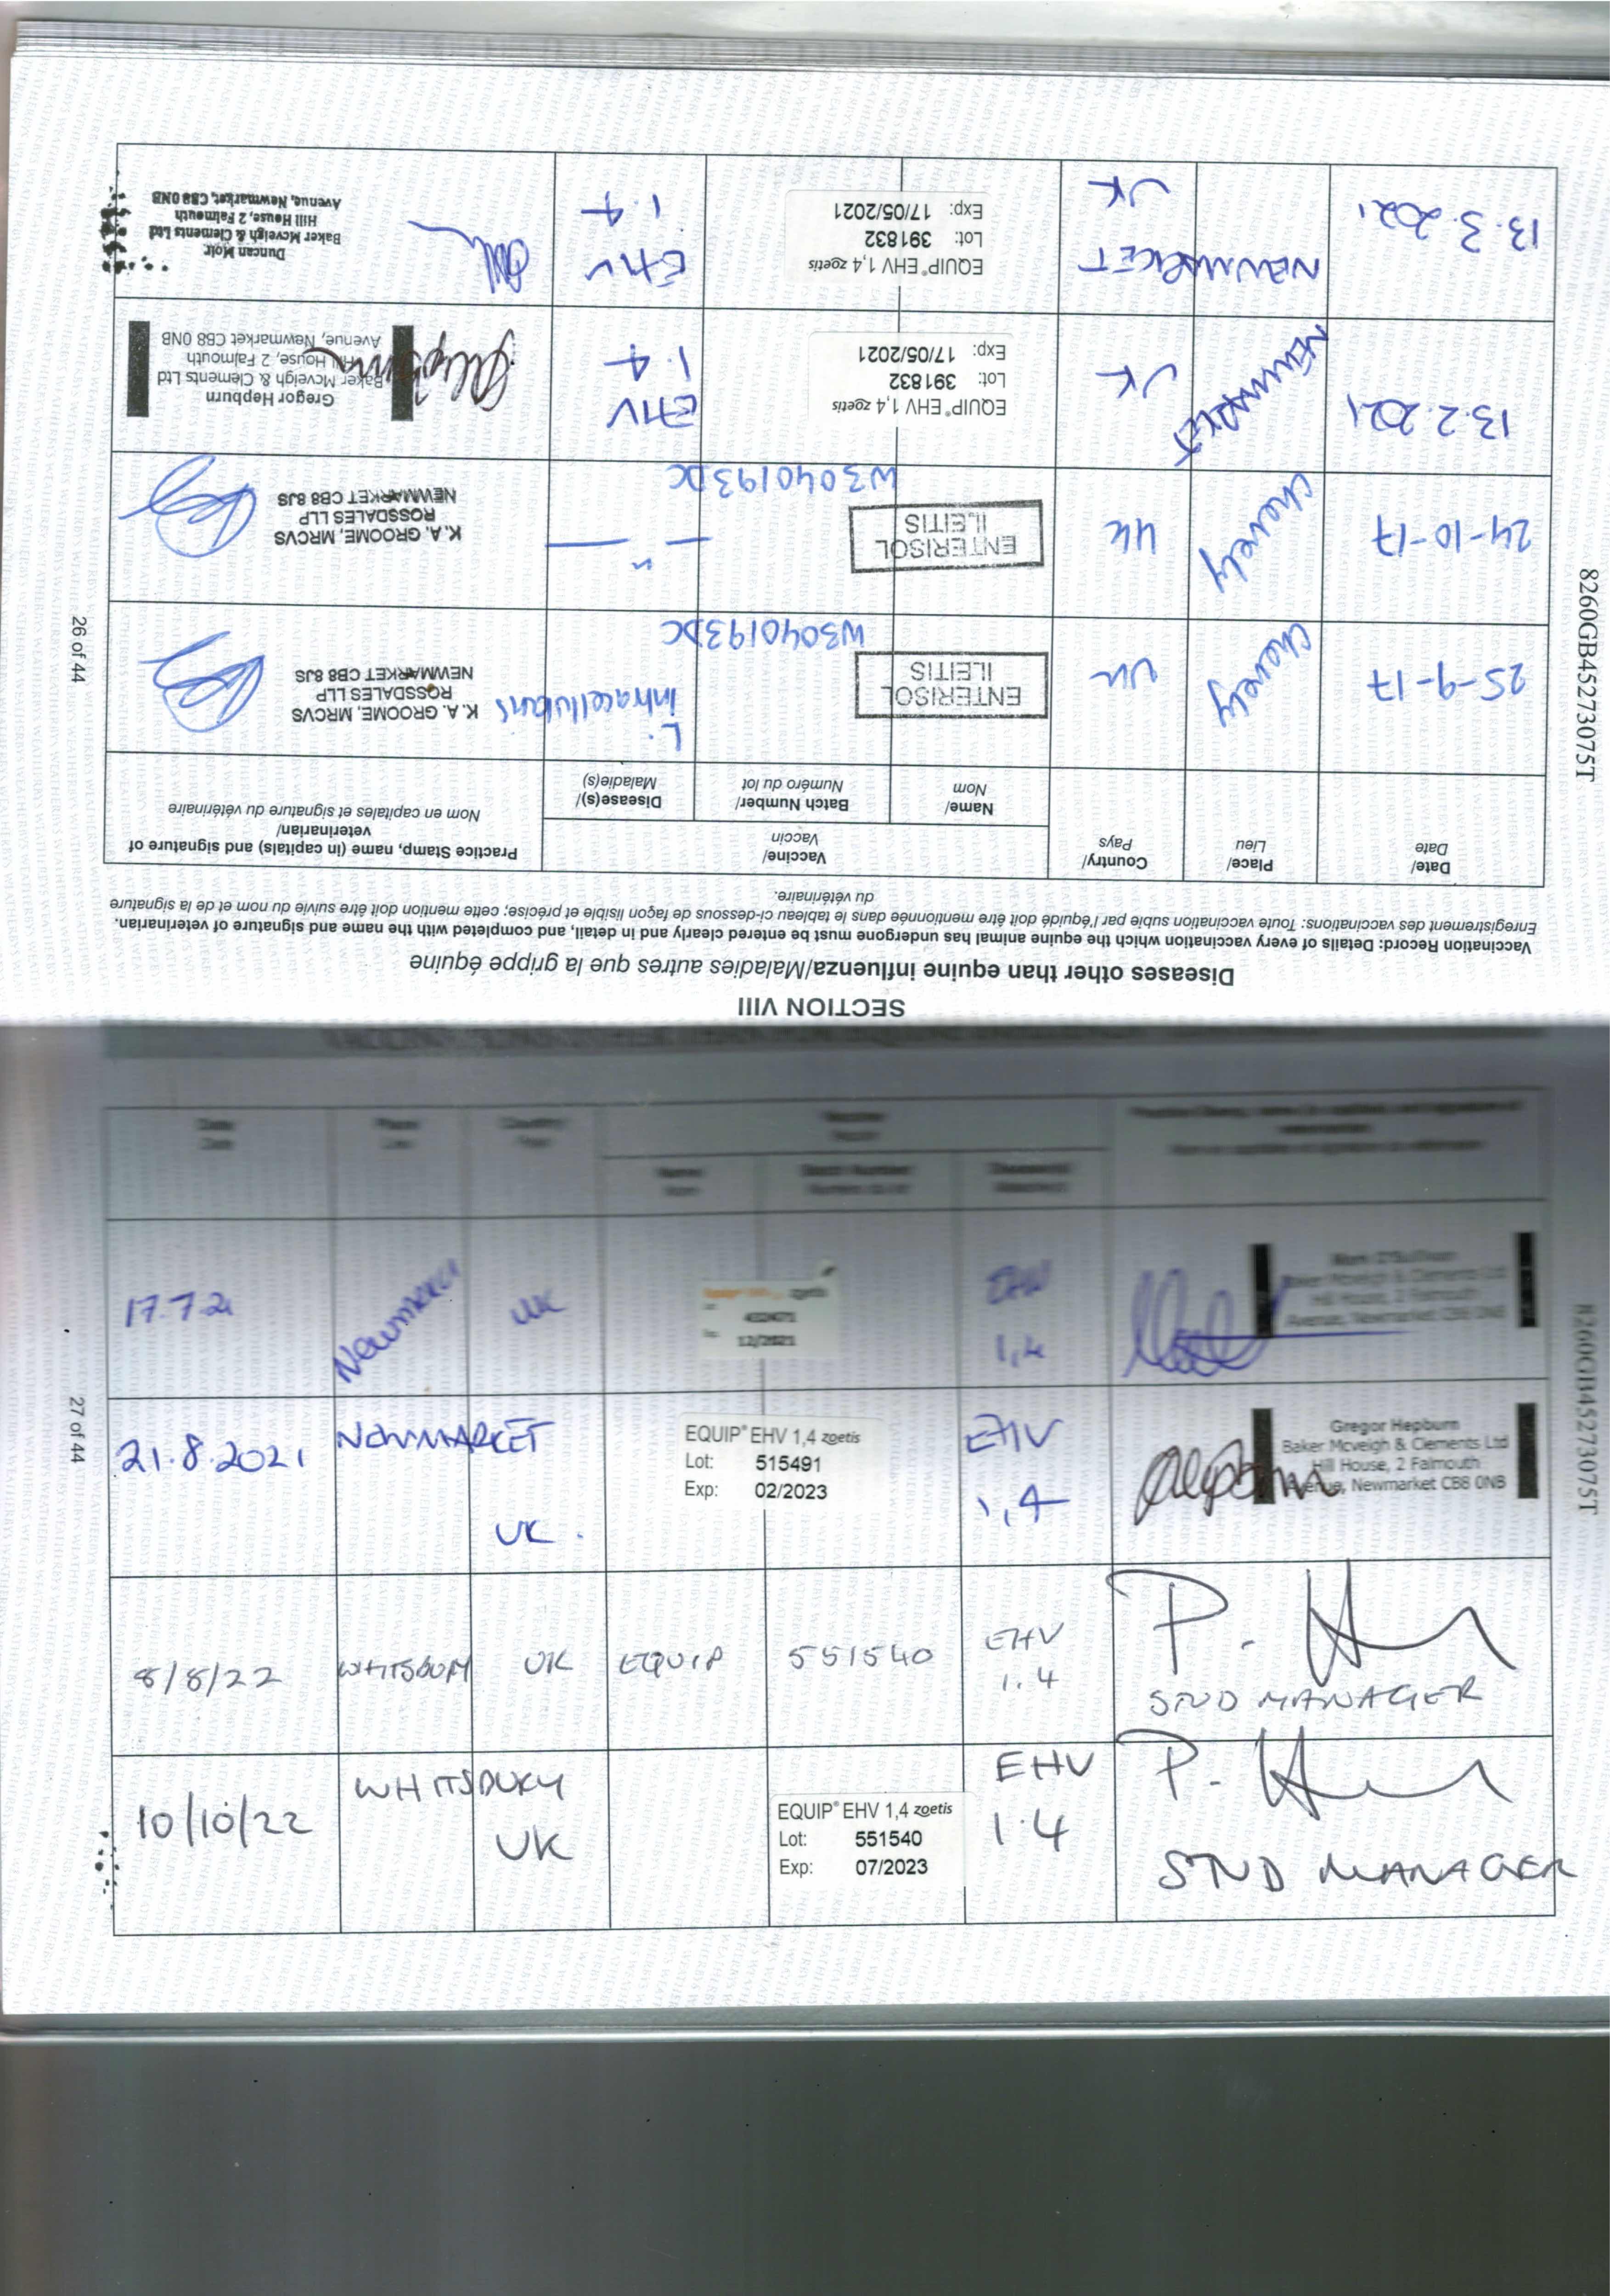 SECTION VIII
Diseases other than equine influenza/Maladies autres que la grippe équine
Vaccination Record: Details of every vaccination which the equine animal has undergone must be entered clearly and in detail, and completed with the name and signature of veterinarian.
Enregistrement des vaccinations: Toute vaccination subie par l'équidé doit être mentionnée dans le tableau ci-dessous de façon lisible et précise; cette mention doit être suivie du nom et de la signature
du vétérinaire.
Date/
Date
Place/
Lieu
Country/
Pays
Vaccine/
Vaccin
Name/
Nom
Batch Number/
Numéro du lot
Disease(s)/
Maladie(s)
Practice Stamp, name (in capitals) and signature of
veterinarian/
Nom en capitales et signature du vétérinaire
25-9-17
Cheveley
UK
ENTERISOL
ILEITIS
W3040193DC
L.
intracellularis
K. A. GROOME, MRCVS
ROSSDALES LLP
NEWMARKET CB8 8JS
24-10-17
Cheveley
UK
ENTERISOL
ILEITIS
W3040193DC
— " —
K. A. GROOME, MRCVS
ROSSDALES LLP
NEWMARKET CB8 8JS
13.2.2021
NEWMARKET
UK
EQUIP® EHV 1,4 zoetis
Lot: 391832
Exp: 17/05/2021
EHV
1.4
Gregor Hepburn
Baker Mcveigh & Clements Ltd
Hill House, 2 Falmouth
Avenue, Newmarket CB8 0NB
13.3.2021
NEWMARKET
UK
EQUIP® EHV 1,4 zoetis
Lot: 391832
Exp: 17/05/2021
EHV
1.4
Duncan Moir
Baker Mcveigh & Clements Ltd
Hill House, 2 Falmouth
Avenue, Newmarket, CB8 0NB
8260GB45273075T
26 of 44
Date
Date
Place
Lieu
Country
Pays
Vaccine
Vaccin
Name
Nom
Batch Number
Numéro du lot
Disease(s)
Maladie(s)
17.7.21
Newmarket
UK
zoetis
12/2021
EHV
1,4
Mark O'Sullivan
Baker Mcveigh & Clements Ltd
Hill House, 2 Falmouth
Avenue, Newmarket CB8 0NB
21.8.2021
NEWMARKET
UK.
EQUIP® EHV 1,4 zoetis
Lot: 515491
Exp: 02/2023
EHV
1,4
Gregor Hepburn
Baker Mcveigh & Clements Ltd
Hill House, 2 Falmouth
Avenue, Newmarket CB8 0NB
8/8/22
WHITSBURY
UK
EQUIP
551540
EHV
1.4
STUD MANAGER
10/10/22
WHITSBURY
UK
EQUIP® EHV 1,4 zoetis
Lot: 551540
Exp: 07/2023
EHV
1.4
STUD MANAGER
8260GB45273075T
27 of 44